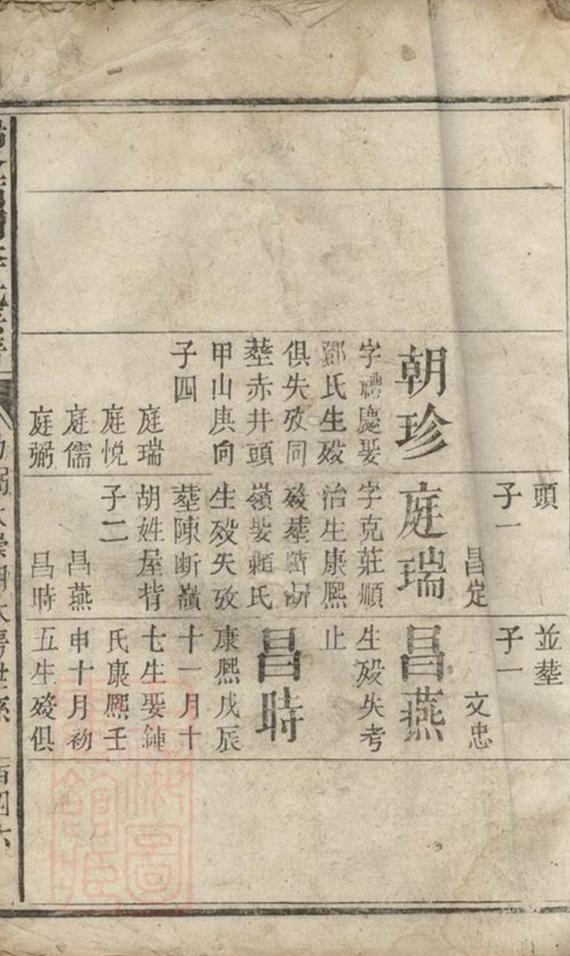 朝珍
字禮慶娶
鄧氏生殁
俱失攷同
塟赤井頭
甲山庚向
子四
庭瑞
庭悦
庭儒
庭弼
頭
子一
昌定
庭瑞
字克莊順
治生康熈
嶺娶賴氏
生殁失攷
塟陳断嶺
胡姓屋背
子二
昌燕
昌時
並塟
子一
文忠
昌燕
生殁失考
止
昌時
康熈戊辰
十一月十
七生娶鍾
氏康熈壬
申十月初
五生殁俱